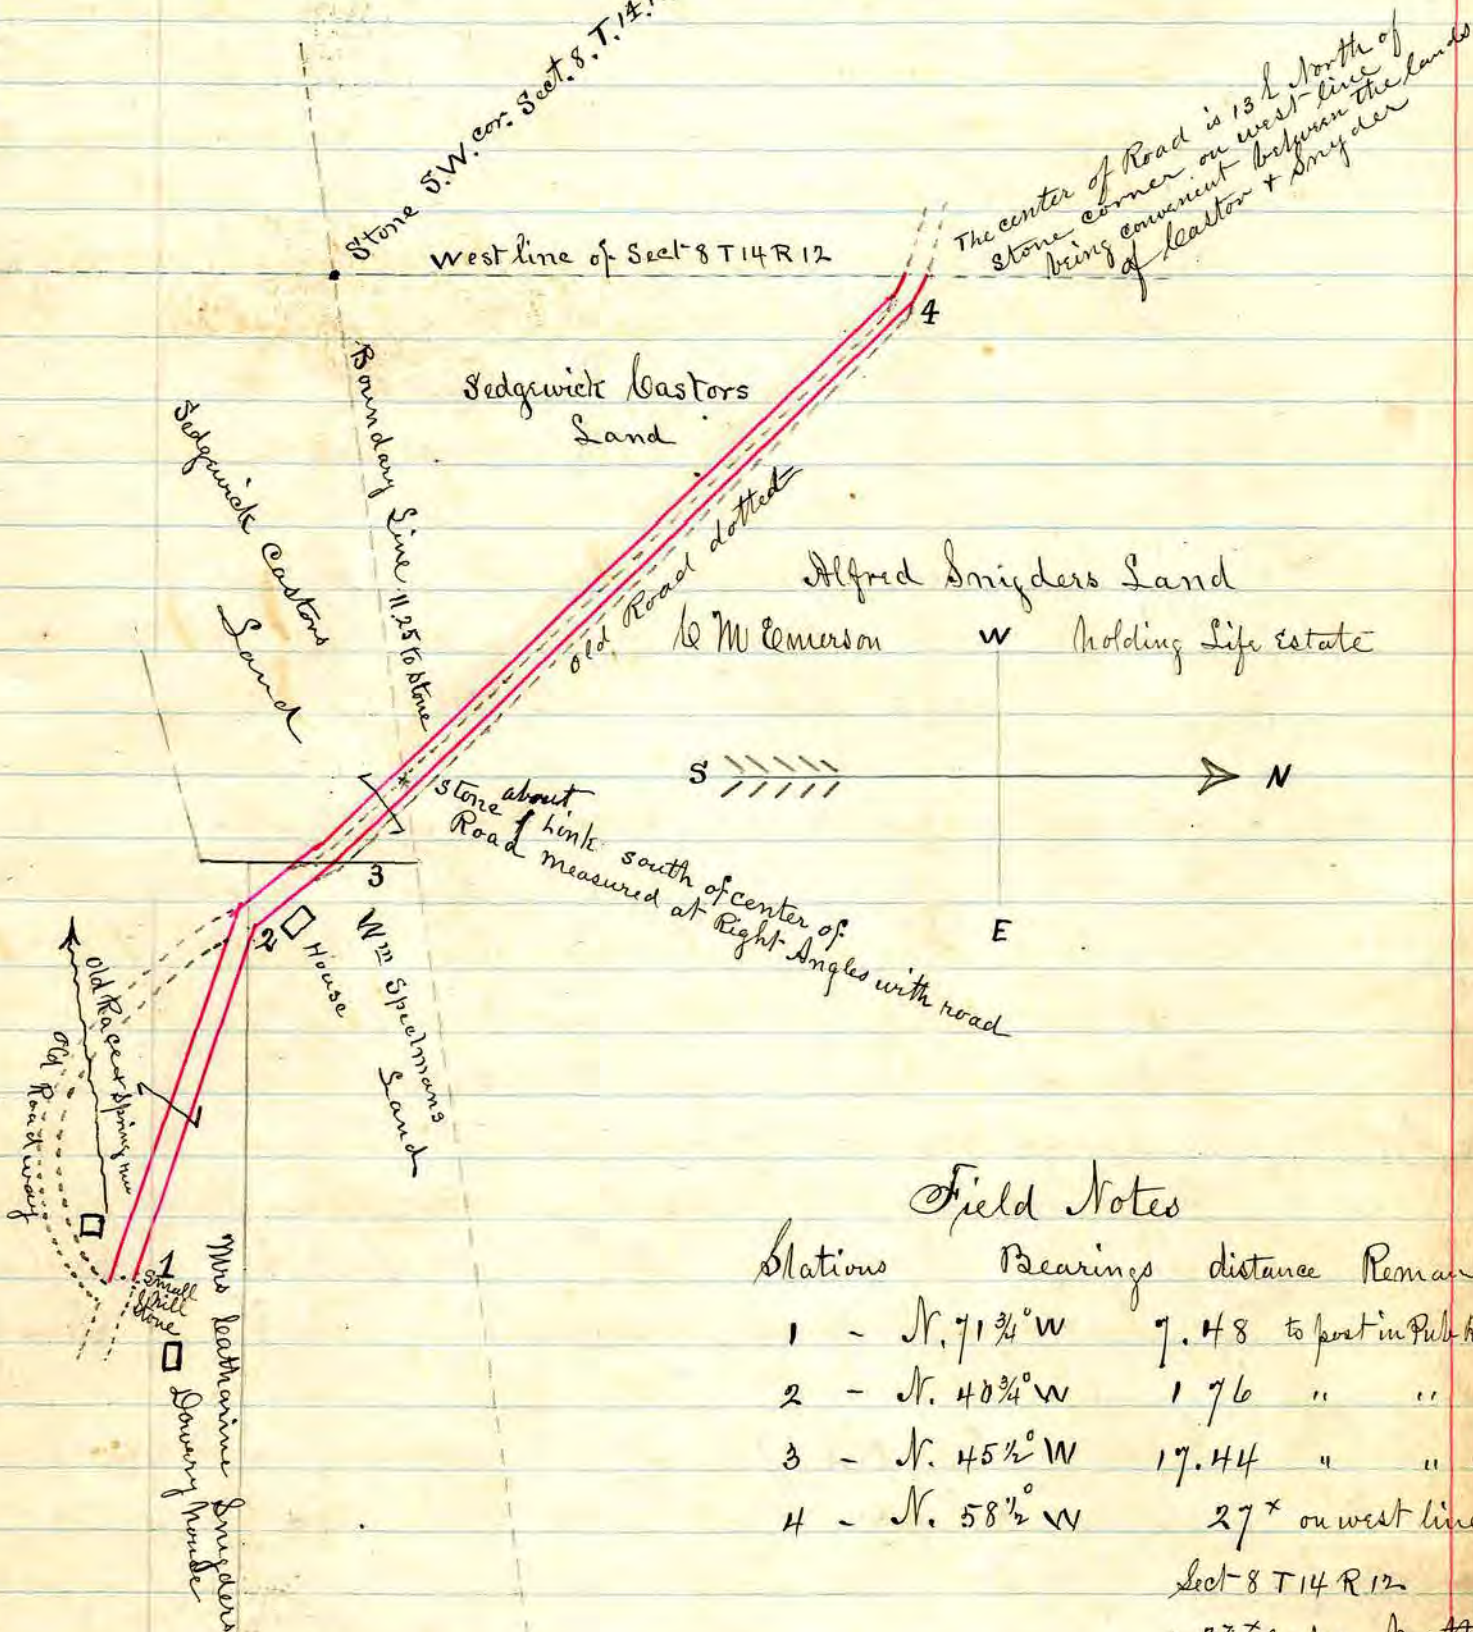 Stone S.W. cor. Sect. 8. T. 14.
West line of Sect 8 T 14 R 12
The center of Road is 13 L North of
Stone corner on west line of
being convenient between the lands
of Castor & Snyder
4
Sedgewick Castors
Land
Boundary Line 11.25 to Stone
Sedgwick Castors
Land
Old Road dotted
Alfred Snigders Land
C M Emerson W holding Life Estate
S N
E
Stone about
Link south of center of
Road measured at Right Angles with road
3
2
House
Wm Spielmans
Land
Old Race or Spring run
Old Road way
1
Small
Mill
Stone
Mrs Catharine Snigders
Dowery house
Field Notes
Stations Bearings distance Remar
1 - N. 71 3/4° W 7.48 to post in Pub
2 - N. 40 3/4° W 1 76 " "
3 - N. 45 1/2° W 17.44 " "
4 - N. 58 1/2° W 27x on west line
Sect 8 T 14 R 12